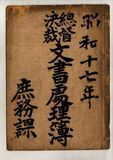 昭和十七年
總督決裁
文書處理簿
庶務課